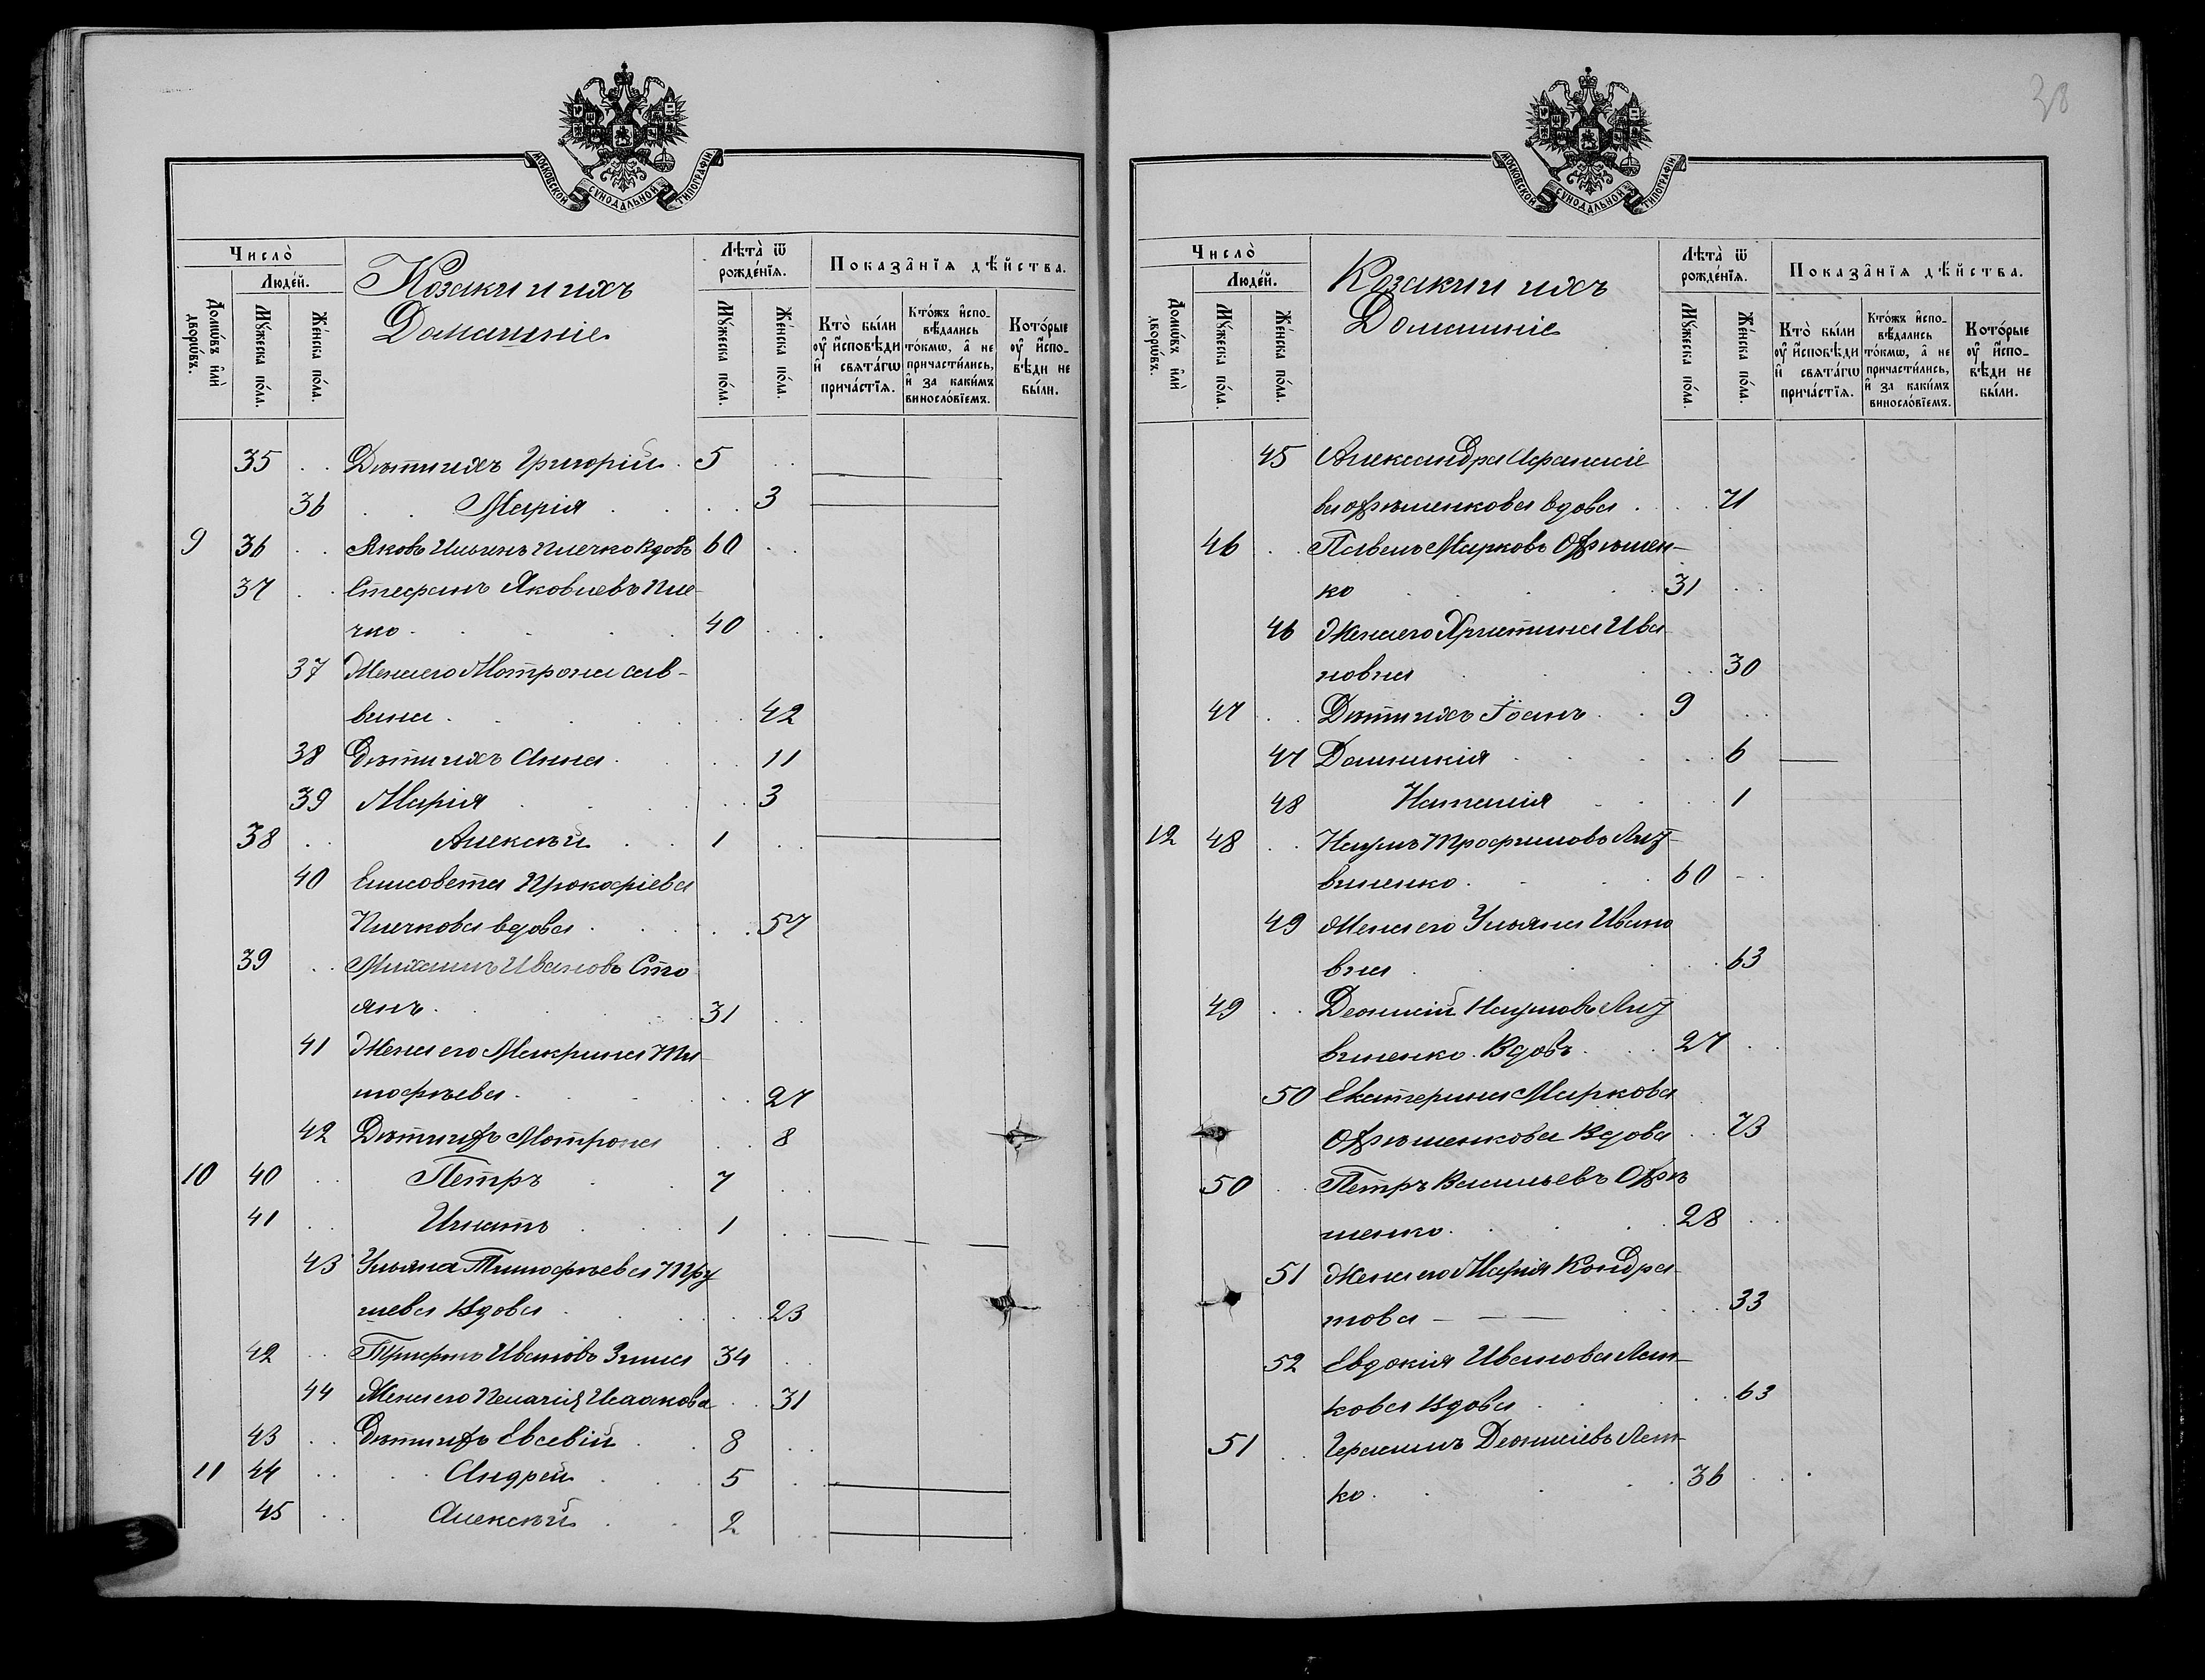 МОСКОВСКОЙ СѴНОДАЛЬНОЙ ТИПОГРАФІИ
Число̀
Люде́й.
Домѡ́въ и҆лѝ дворѡ́въ.
Мꙋ́жеска по́ла.
Же́нска по́ла.
Козаки и ихъ
Домашніе
Лѣта̀ ѿ рожде́нїѧ.
Мꙋ́жеска по́ла.
Же́нска по́ла.
Показа̑нїѧ дѣ́йства.
Кто̀ бы́ли ᲂу҆ и҆сповѣди и҆ свѧта́гѡ прича́стїѧ.
Кто́жъ и҆сповѣдались то́кмѡ, а҆ не причасти́лись, и҆ за каки́мъ винословїемъ.
Кото́рые ᲂу҆ и҆сповѣди не бы́ли.
35 . . Дѣти ихъ Григорій . 5 . .
36 . . Марія . . . 3
9 36 . . Яковъ Ильинъ Плечко Вдовъ 60 . .
37 . . Стефанъ Яковлевъ Пле-
чко . . . . 40 . . .
37 Жена его Мотрона Сав-
вина . . . . . 42
38 Дѣти ихъ Анна . . . 11
39 Марія . . . . 3
38 . . Алексѣй . . 1 . .
40 Елисовета Прокофіева
Плечкова вдова . . . . 57
39 . . Михаилъ Ивановъ Сто
янъ . . . . 31 . .
41 Жена его Макрина Ти-
мофѣева . . . . 27
42 Дѣти ихъ Мотрона . . 8
10 40 . . Петръ . . 7 . .
41 . . Игнатъ . . 1 . .
43 Ульяна Тимофѣева Тру
шева Вдова . . . . 23
42 . . Трифонъ Ивановъ Зима 34 . .
44 Жена его Пелагія Исаакова . . 31
43 . . Дѣти ихъ Евсевій . 8 . .
11 44 . . Андрей . . 5 . .
45 . . Алексѣй . . 2 . .
38
МОСКОВСКОЙ СѴНОДАЛЬНОЙ ТИПОГРАФІИ
Число̀
Люде́й.
Домѡ́въ и҆лѝ дворѡ́въ.
Мꙋ́жеска по́ла.
Же́нска по́ла.
Козаки и ихъ
Домашніе
Лѣта̀ ѿ рожде́нїѧ.
Мꙋ́жеска по́ла.
Же́нска по́ла.
Показа̑нїѧ дѣ́йства.
Кто̀ бы́ли ᲂу҆ и҆сповѣди и҆ свѧта́гѡ прича́стїѧ.
Кто́жъ и҆сповѣдались то́кмѡ, а҆ не причасти́лись, и҆ за каки́мъ винословїемъ.
Кото́рые ᲂу҆ и҆сповѣди не бы́ли.
45 Александра Афанасіе
ва вдова . . . 71
46 . . Павелъ Марковъ
ко . . . . 31 . .
46 Жена его Христина Ива
новна . . . 30
47 . . Дѣти ихъ Іоанъ . . 9 . .
47 Домникія . . . . 6
48 Наталія . . . 1
12 48 . . Наумъ Трофимовъ Лит-
виненко . . . 60 . .
49 Жена его Ульяна Ивано
вна . . . . 63
49 . . Деонисій Наумовъ Лит
виненко Вдовъ . . . 27 . .
50 Екатерина Маркова
Вдова . . 73
50 . . Петръ Васильевъ
шенко . . . . 28 . .
51 Жена его Марія Кондра-
това — — . . . 33
52 Евдокія Иванова
кова Вдова . . . . 63
51 . . Герасимъ Деонисіевъ
ко . . . . 36 . . .